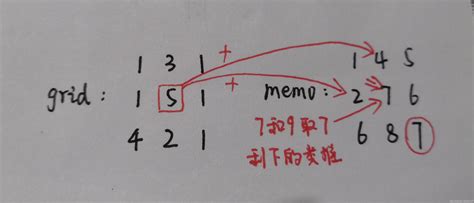 1 3 1 + 1 4 5
grid: 1 5 1 + memo: 2 7 6
4 2 1 6 8 7
7和9取7
剩下的类推